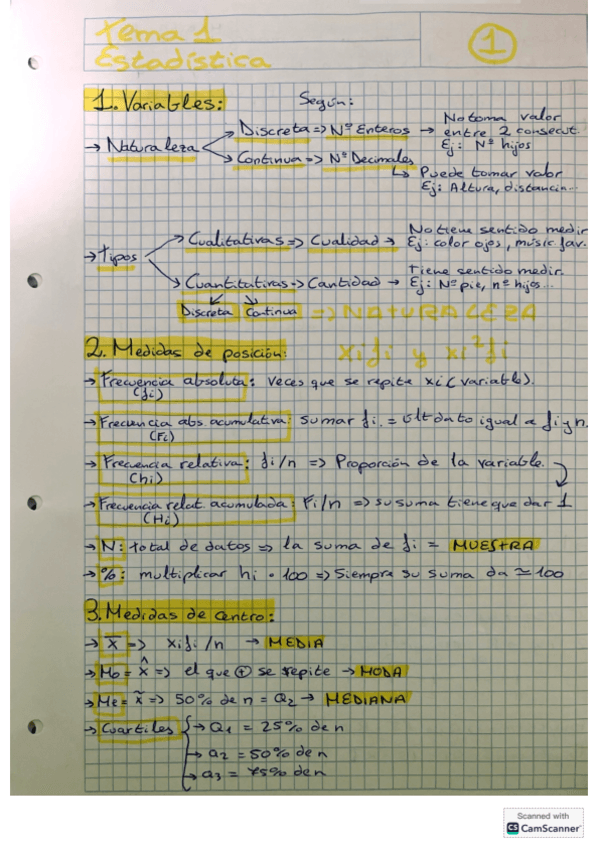 Tema 1
Estadística
1
1. Variables:
Según:
→ Naturaleza
Discreta => Nº Enteros → No toma valor
entre 2 consecut.
Ej: Nº hijos
Continua => Nº Decimales
↳ Puede tomar valor
Ej: Altura, distancia...
→ Tipos
Cualitativas => Cualidad → No tiene sentido medir
Ej: color ojos, music fav.
Cuantitativas => Cantidad → Tiene sentido medir.
Ej: Nº pie, nº hijos...
Discreta Continua => NATURALEZA
2. Medidas de posición:
xifi y xi²fi
→ Frecuencia absoluta: veces que se repite xi (variable).
(fi)
→ Frecuencia abs. acumulativa: sumar fi. = últ dato igual a fi y n.
(Fi)
→ Frecuencia relativa: fi/n => Proporción de la variable.
(hi)
→ Frecuencia relat. acumulada: Fi/n => su suma tiene que dar 1
(Hi)
→ N: total de datos => la suma de fi = MUESTRA
→ %: multiplicar hi · 100 => Siempre su suma da ≃ 100
3. Medidas de centro:
→ X̄ => xifi/n → MEDIA
→ Mo = x̂ => el que ⊕ se repite → MODA
→ Me = x̃ => 50% de n = Q2 → MEDIANA
→ Cuartiles
→ Q1 = 25% de n
→ Q2 = 50% de n
→ Q3 = 75% de n
Scanned with
CS CamScanner